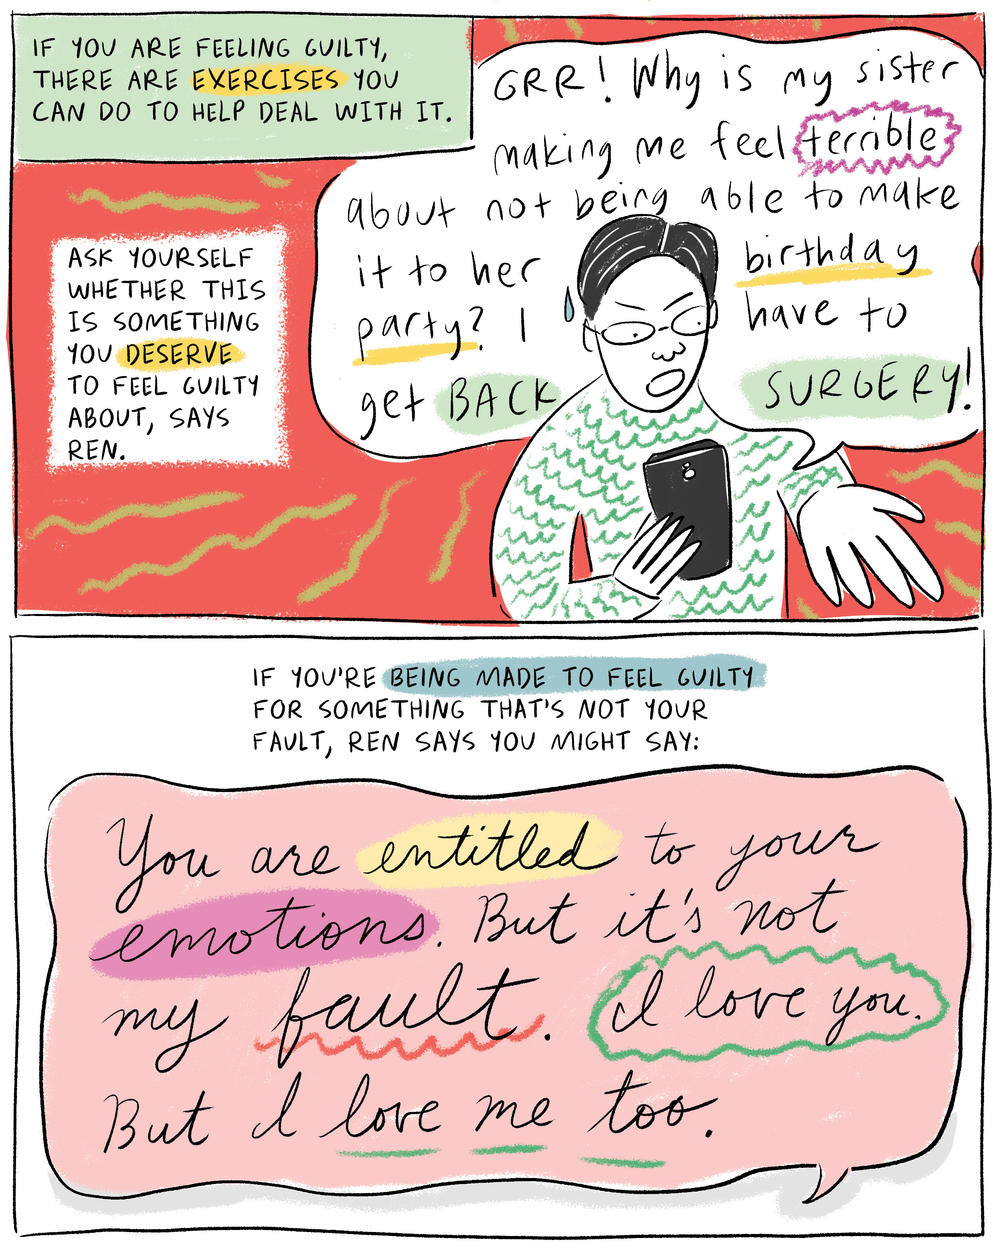 IF YOU ARE FEELING GUILTY,
THERE ARE EXERCISES YOU
CAN DO TO HELP DEAL WITH IT.
GRR! Why is my sister
making me feel terrible
about not being able to make
it to her birthday
party? I have to
get BACK SURGERY!
ASK YOURSELF
WHETHER THIS
IS SOMETHING
YOU DESERVE
TO FEEL GUILTY
ABOUT, SAYS
REN.
IF YOU'RE BEING MADE TO FEEL GUILTY
FOR SOMETHING THAT'S NOT YOUR
FAULT, REN SAYS YOU MIGHT SAY:
You are entitled to your
emotions. But it's not
my fault. I love you.
But I love me too.